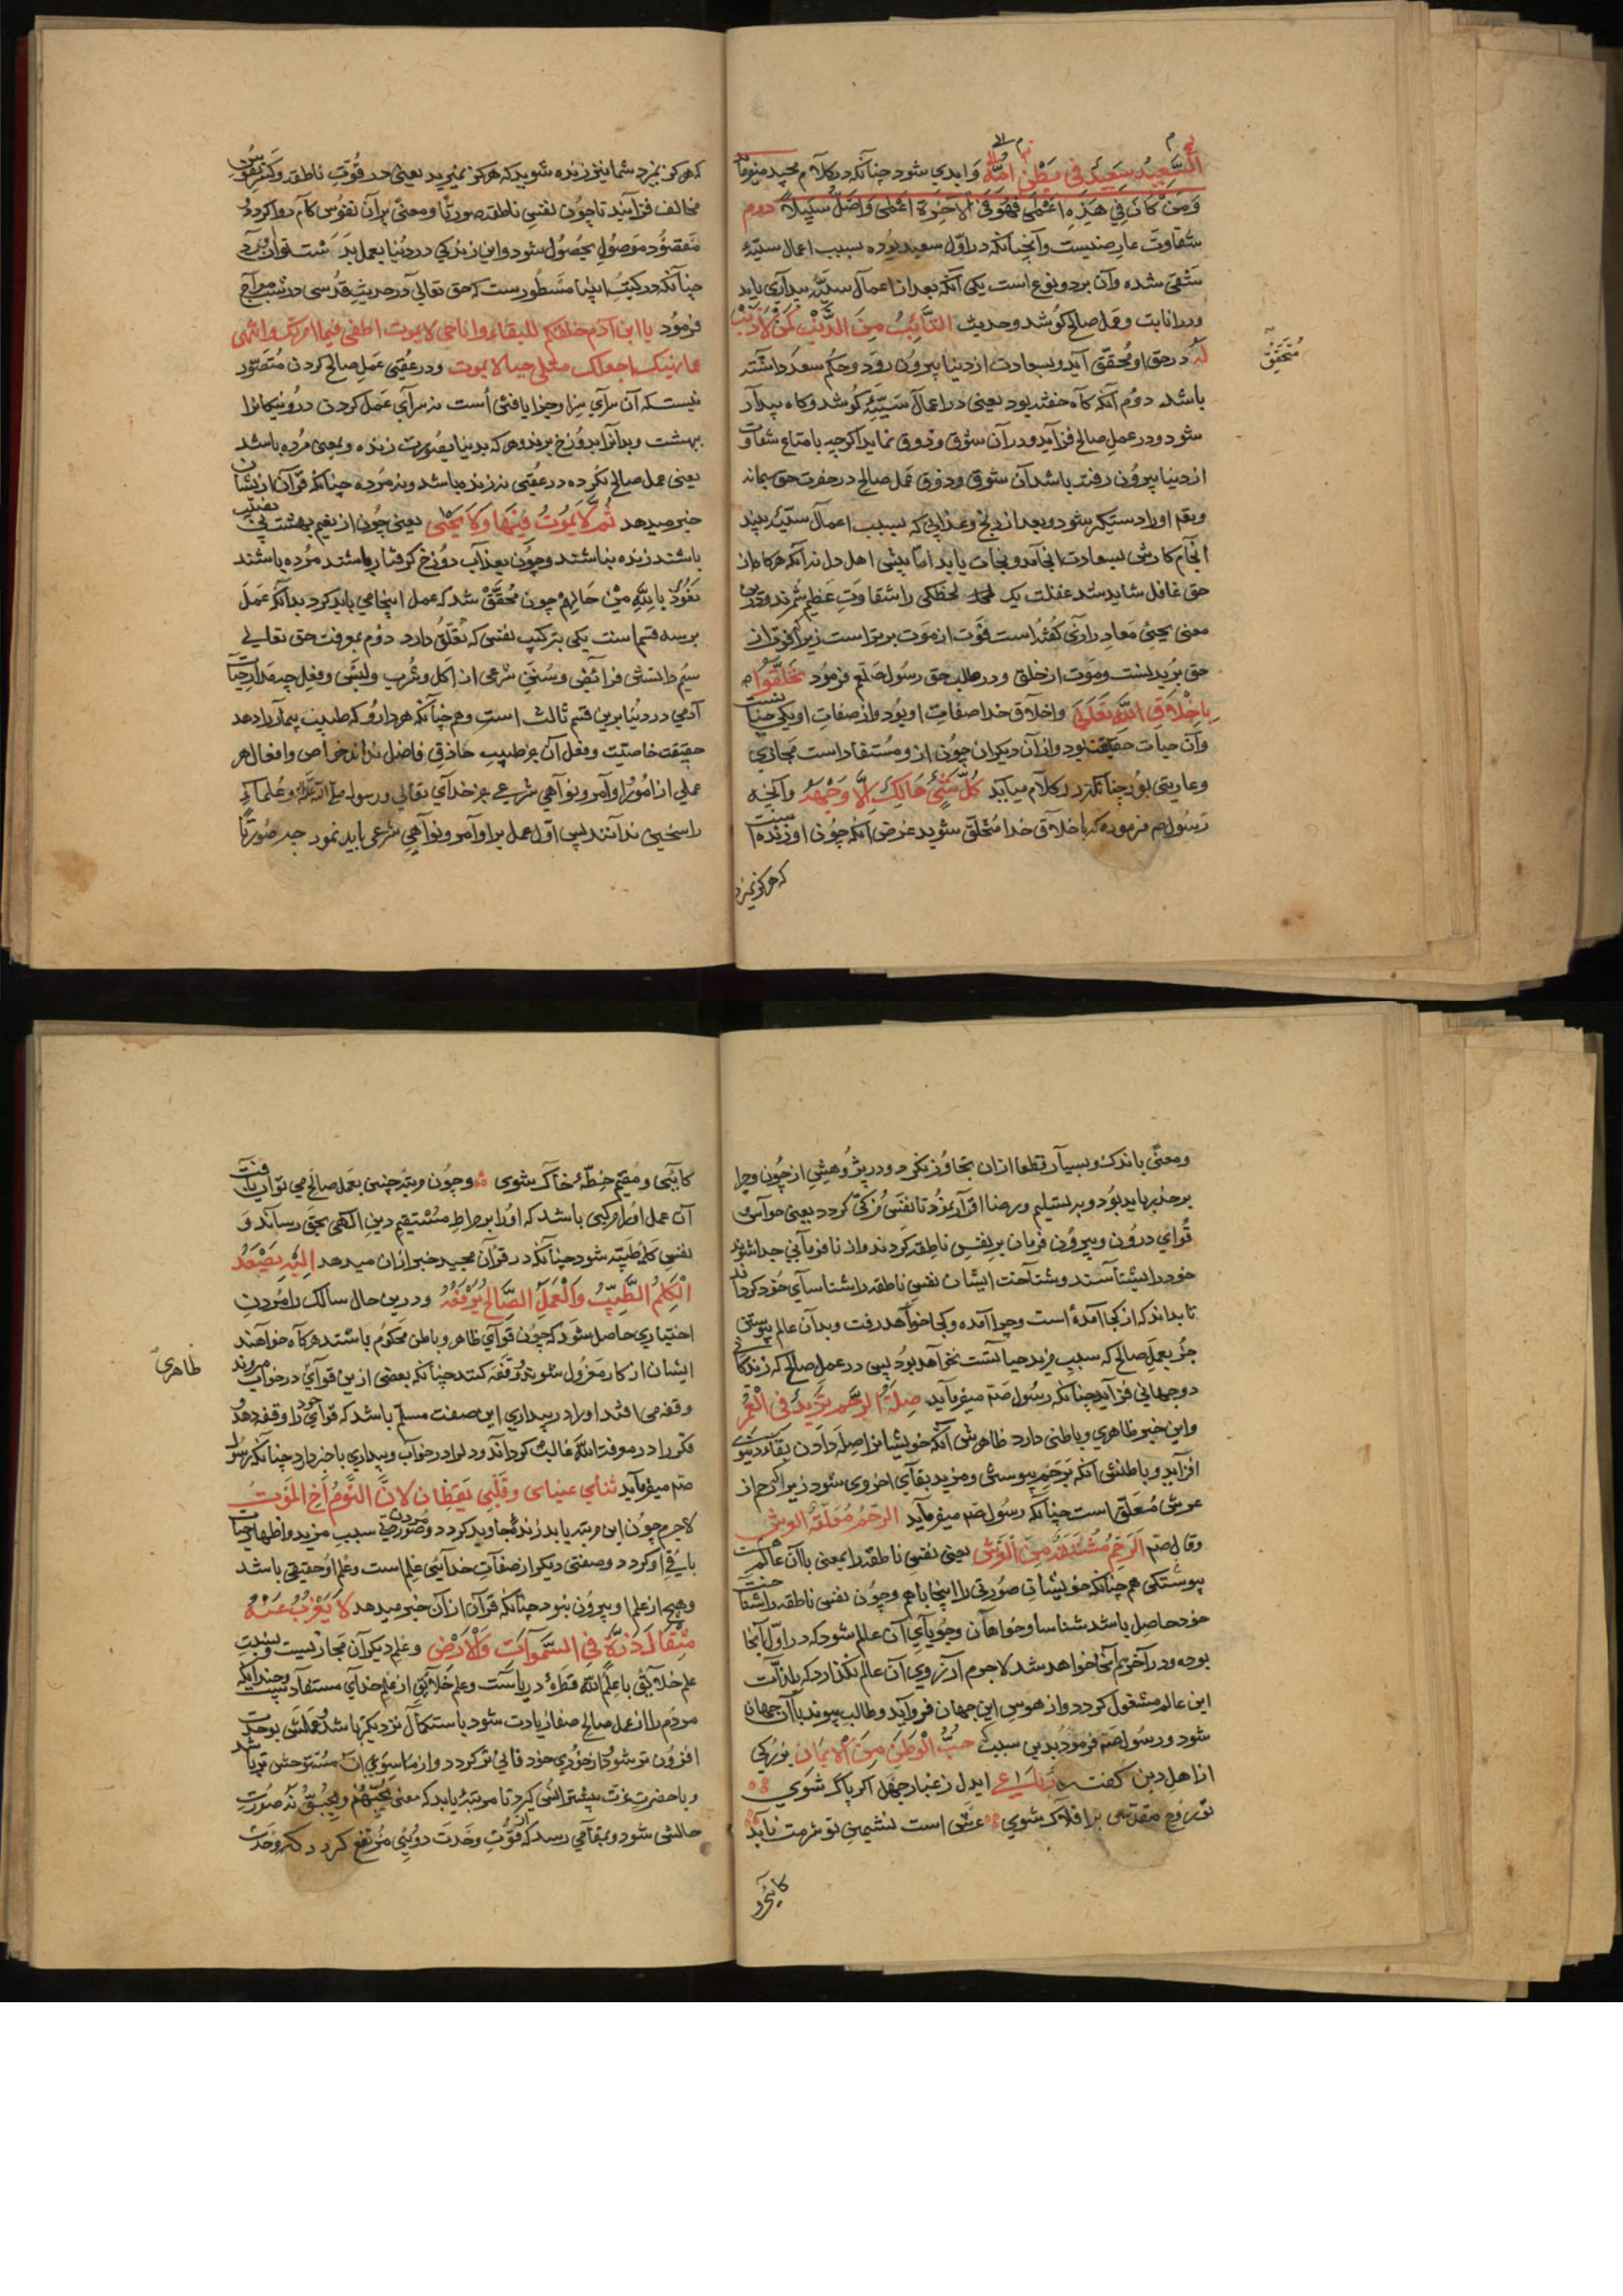 السَّعِیدُ سَعِیدٌ فِی بَطْنِ اُمِّهِ وَ ابدی شود چنانکه در کلام مجید میفرماید
وَ مَنْ کَانَ فِی هٰذِهِ اَعْمٰی فَهُوَ فِی الْاٰخِرَةِ اَعْمٰی وَ اَضَلُّ سَبِیلًا دوم
شقاوت عارضیست و آنچنانکه در اوّل سعید بوده بسبب اعمال سیّئه
شقی شده و آن بر دو نوع است یکی آنکه بعد از اعمال سیّئه بیداری یابد
و در انابت و عمل صالح کوشد و حدیث التَّائِبُ مِنَ الذَّنْبِ کَمَنْ لَا ذَنْبَ
لَهُ در حق او محقّق آید و بسعادت از دنیا بیرون رود و حکم سعدا داشته
متحقّق
باشد دوّم آنکه گاه خفته بود یعنی در اعمال سیّئه کوشد و گاه بیدار
شود و در عمل صالح فزاید و در آن شوق و ذوق نماید اگرچه با متاع شقاوت
از دنیا بیرون رفته باشد آن شوق و ذوق عمل صالح در حضرت حق سبحانه
و تعـ او را دستگیر شود و بعد از رنج و عذابی که بسبب اعمال سیّئه بیند
انجام کارش بسعادت انجامد و نجات یابد امّا پیش اهل دل ندانکه هرکه از
حق غافل شاید شد غفلت یک لحظگی را شقاوت عظیم شمرند و درین
معنی یحیی معاد رازی گفته است فوت از موت برتر است زیرا که فوت از
حق بریدنست و موت از خلق و در طلب حق رسول صلعم فرمود تَخَلَّقُوا
بِاَخْلَاقِ اللّٰهِ تَعَالٰی و اخلاق خدا صفات او بود و از صفات او یکی حیاتست
و آن حیات حقیقت بود و از آن دیگران چون از و مستفاد است مجازی
و عاریتی بود چنانکه در کلام میآید کُلُّ شَیْءٍ هَالِکٌ اِلَّا وَجْهَهُ و آنچه
رسول صم فرموده که باخلاق خدا متخلّق شوید غرض آنکه چون او زنده است
که هرگز نمیرد
که هرگز نمیرد شما نیز زنده شوید که هرگز نمیرید یعنی در قوّت ناطقه و کسر نفوس
مخالف فزایید تا چون نفس ناطقه صورتًا و معنًی بر آن نفوس کام روا گردد
مقصود موصول بحصول شود و این زندگی در دنیا بعمل بدست توان آورد
چنانکه در کتب انبیا مسطورست که حق تعالی در حدیث قدسی در شب معراج
فرمود یا ابن آدم خلقتکم للبقاء و انا حی لا یموت اطعنی فیما امرتک و انتهی
عما نهیتک اجعلک مثلی حیا لا یموت و در عقبی عمل صالح کردن متصوّر
نیست که آن سرای سزا و جزا یافتن است نه سرای عمل کردن درو نیکانرا
ببهشت و بدانرا بدوزخ برند و هرکه بدنیا بصورت زنده و بمعنی مرده باشد
یعنی عمل صالح نکرده در عقبی نه زنده باشد و نه مرده چنانکه قرآن ازیشان
خبر میدهد ثُمَّ لَا یَمُوتُ فِیْهَا وَ لَا یَحْیٰی یعنی چون از نعیم بهشت بی نصیب
باشند زنده نباشند و چون بعذاب دوزخ گرفتار باشند مرده باشند
نعوذ بالله من حالهم چون محقّق شد که عمل اینجا می باید کرد بدانکه عمل
بر سه قسم است یکی بترکیب نفس که تعلّق دارد دوّم بمعرفت حق تعالی
سیّم دانستن فرائض و سنن شرعی از اکل و شرب و لبس و فعل چه مدار حیات
آدمی در دنیا برین قسم ثالث است و همچنانکه هر دارو که طبیب بیمار را دهد
حقیقت خاصیّت و فعل آن جز طبیب حاذق فاضل نداند خواص و افعال هر
عملی از امور اوامر و نواهی شرعی جز خدای تعالی و رسول صلی الله علیه و علماء
راسخین ندانند پس اوّل عمل بر اوامر و نواهی شرعی باید نمود چه صورتًا
و معنًی باندک و بسیار قطعا از آن تجاوز نکرد و در پژوهش از چون و چرا
بر حذر باید بود و بر تسلیم و رضا اقرار نمود تا نفس مزکّی گردد یعنی حواس
قوای درون و بیرون فرمان بر نفس ناطقه گردند و از نا فرمانی جدا شوند
خود را بشناسند و شناخت ایشان نفس ناطقه را شناسای خود گرداند
تا بداند که از کجا آمده است و چرا آمده و کجا خواهد رفت و بدان عالم پیوستن
جز بعمل صالح که سبب مزید حیاتست نخواهد بود پس در عمل صالح که زندگانی
دو جهانی فزاید چنانکه رسول صم میفرماید صِلَةُ الرَّحِمِ تَزِیدُ فِی الْعُمْرِ
و این خبر ظاهری و باطنی دارد ظاهرش آنکه خویشانرا صله دادن بقاء دنیوی
افزاید و باطنش آنکه برحم پیوستن و مزید بقای اخروی شود زیرا که رحم از
عرش معلّق است چنانکه رسول صم میفرماید الرَّحِمُ مُعَلَّقَةٌ الْعَرْشِ
و قال صم اَلرَّحِمُ مُشْتَقَّةٌ مِنَ الْعَرْشِ یعنی نفس ناطقه را بمعنی با آن عالم
پیوستگی همچنانکه خویشان صورتی را اینجا باهم و چون نفس ناطقه را شناخت
خود حاصل باشد شناسا و خواهان و جویای آن عالم شود که در اوّل آنجا
بوده و در آخر هم آنجا خواهد شد لاجرم آرزوی آن عالم نگذارد که بلذّات
این عالم مشغول گردد و از هوس این جهان فرو آید و طالب پیوند با آن جهان
شود و رسول صم فرمود بدین سبب حُبُّ الْوَطَنِ مِنَ الْاِیْمَانِ بزرگی
از اهل دین گفت رباعی ای دل ز غبار جهل اگر پاک شوی
تو روح مقدّسی بر افلاک شوی عرش است نشیمن تو شرمت ناید
کایی و
کآیی و مقیم خطّهٔ خاک شوی و چون مرتبهٔ چنین بعمل صالح می توان یافت
آن عمل او را مرکبی باشد که او را بر صراط مستقیم دین الهی بحق رساند و
نفس کلمهٔ طیّبه شود چنانکه در قرآن مجید خبر از آن میدهد اِلَیْهِ یَصْعَدُ
الْکَلِمُ الطَّیِّبُ وَ الْعَمَلُ الصَّالِحُ یَرْفَعُهُ و درین حال سالک را مردن
اختیاری حاصل شود که چون قوای ظاهر و باطن محکوم باشند هرگاه خواهند
ظاهری
ایشان از کار معزول شوند و وقفه کنند چنانکه بعضی ازین قوای در خواب میروند
وقفه می افتد او را در بیداری این صفت مسلّم باشد که قوای خود را وقفه دهد
فکر را در معرفة الله غالب گرداند و دل او در خواب و بیداری با خبر دارد چنانکه رسول
صم میفرماید تنامی عینای و قلبی یقظان لان النوم اخ الموت
لاجرم چون این مرتبه یابد زندهٔ جاوید گردد و مردن صورت سبب مزید و اظهار حیات
باقی او گردد و صفتی دیگر از صفات خدایی علم است و علم او حقیقی باشد
و هیچ از علم او بیرون نبود چنانکه قرآن از آن خبر میدهد لَا یَعْزُبُ عَنْهُ
مِثْقَالُ ذَرَّةٍ فِی السَّمٰوَاتِ وَ الْاَرْضِ و علم دیگران مجازیست و نسبت
علم خلایق با علم الله قطرهٔ دریاست و علم خلایق از علم خدای مستفادست و چندانکه
مردم را از عمل صالح صفا زیادت شود باستکمال نزدیکتر باشد و علمش بوحدت
افزون تر شود و از خوری خود فانی تر گردد و از ماسوی الله مستوحش تر باشد
و با حضرت عزت بیشتر انس گیرد تا مرتبهٔ یابد که معنی یُحِبُّهُمْ وَ یُحِبُّونَهُ صورت
حالش شود و بمقامی رسد که قوّت وحدت دویی مرتفع گردد که وحدت